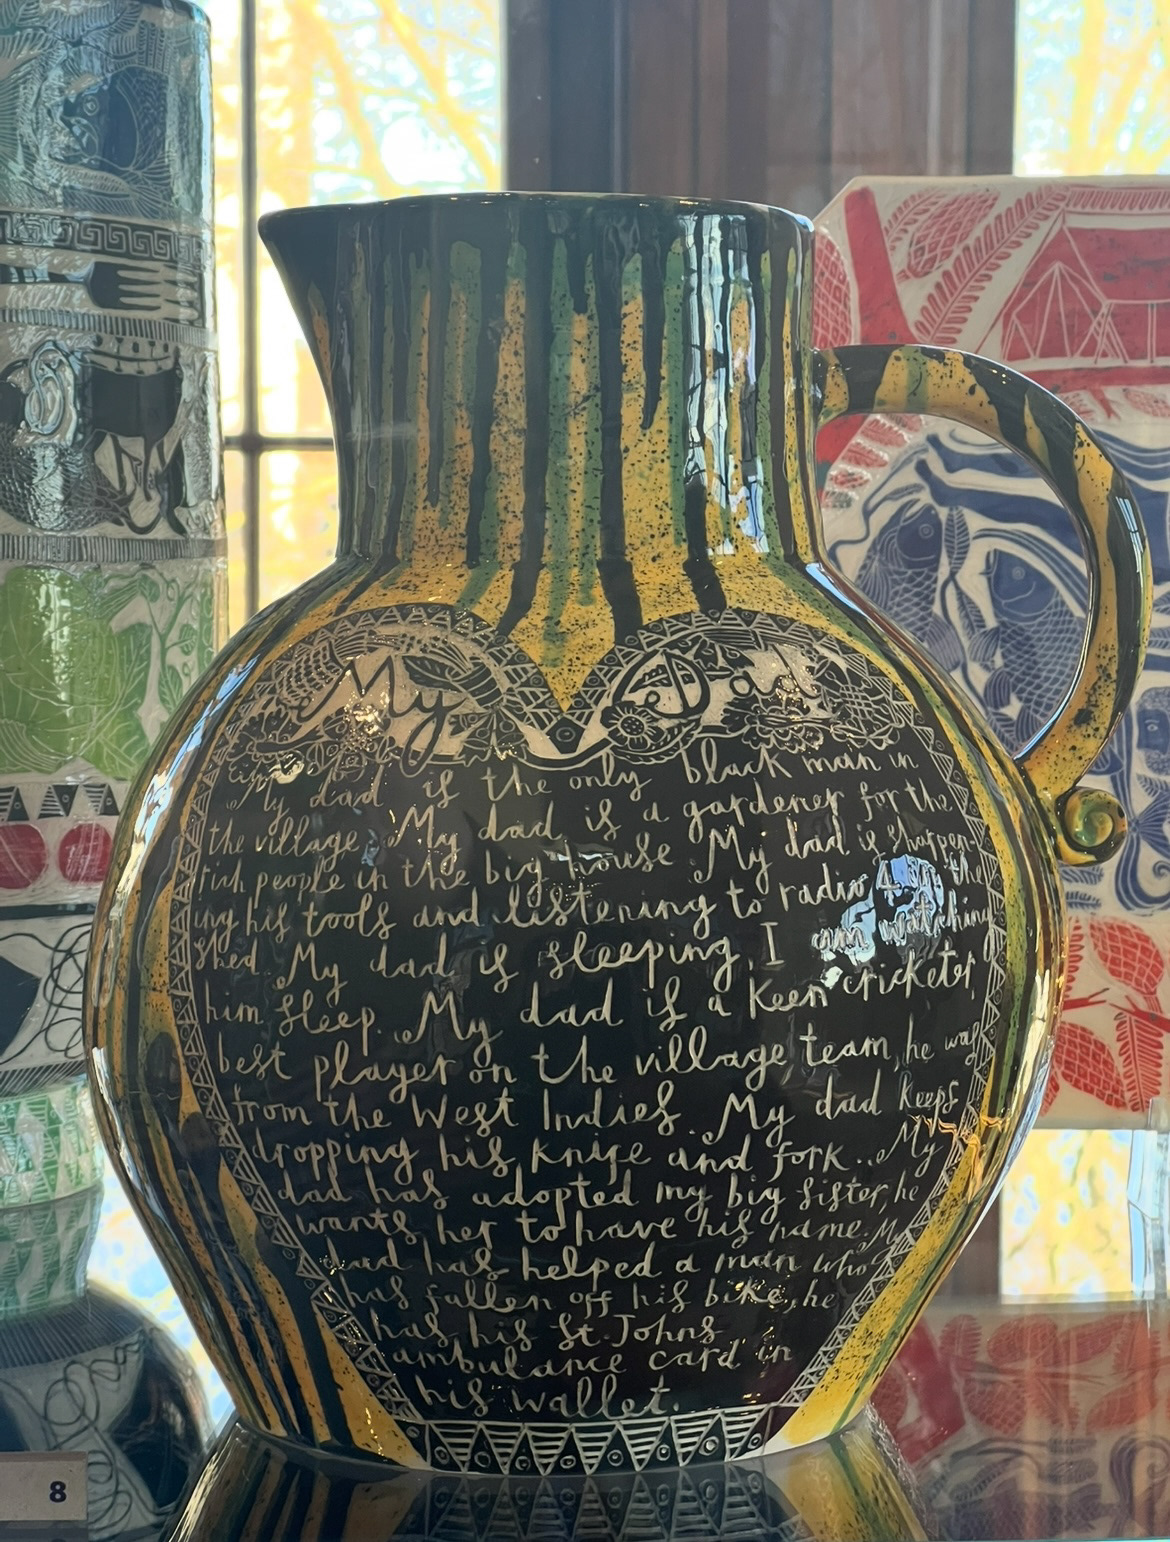 My Dad
My dad is the only black man in
the village. My dad is a gardener for the
rich people in the big house My dad is sharpen-
ing his tools and listening to radio 4 in the
shed. My dad is sleeping I am watching
him sleep. My dad is a keen cricketer,
best player on the village team, he was
from the West Indies. My dad keeps
dropping his knife and fork. My
dad has adopted my big sister, he
wants her to have his name. My
dad has helped a man who
has fallen off his bike, he
has his St. Johns
ambulance card in
his wallet.
8